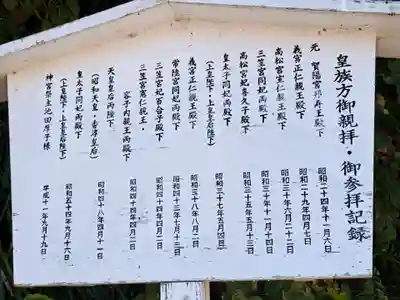 皇族方御親拝・御参拝記録
元 賀陽宮邦寿王殿下 昭和二十四年十一月六日
義宮正仁親王殿下 昭和二十九年四月七日
高松宮宣仁親王殿下 昭和三十年六月二十二日
三笠宮同妃両殿下 昭和三十年十一月十四日
高松宮妃喜久子殿下 昭和三十五年五月三日
皇太子同妃両殿下 昭和三十七年五月四日
(上皇陛下・上皇后陛下)
義宮正仁親王殿下 昭和三十八年八月二日
常陸宮同妃両殿下 昭和四十三年七月十三日
三笠宮妃百合子殿下 昭和四十四年四月二日
三笠宮憲仁親王・ 昭和四十四年四月二日
容子内親王両殿下
天皇皇后両陛下 昭和四十八年四月十一日
(昭和天皇・香淳皇后)
皇太子同妃両殿下 昭和五十四年九月十六日
(上皇陛下・上皇后陛下)
神宮祭主池田厚子様 平成十一年九月十九日